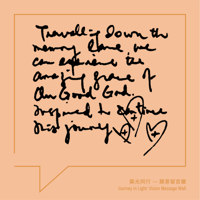 Travelling down the
memory lane, we
can experience the
amazing grace of
Our Good God.
Inspired to continue
this journey
與光同行 — 願景留言牆
Journey in Light: Vision Message Wall